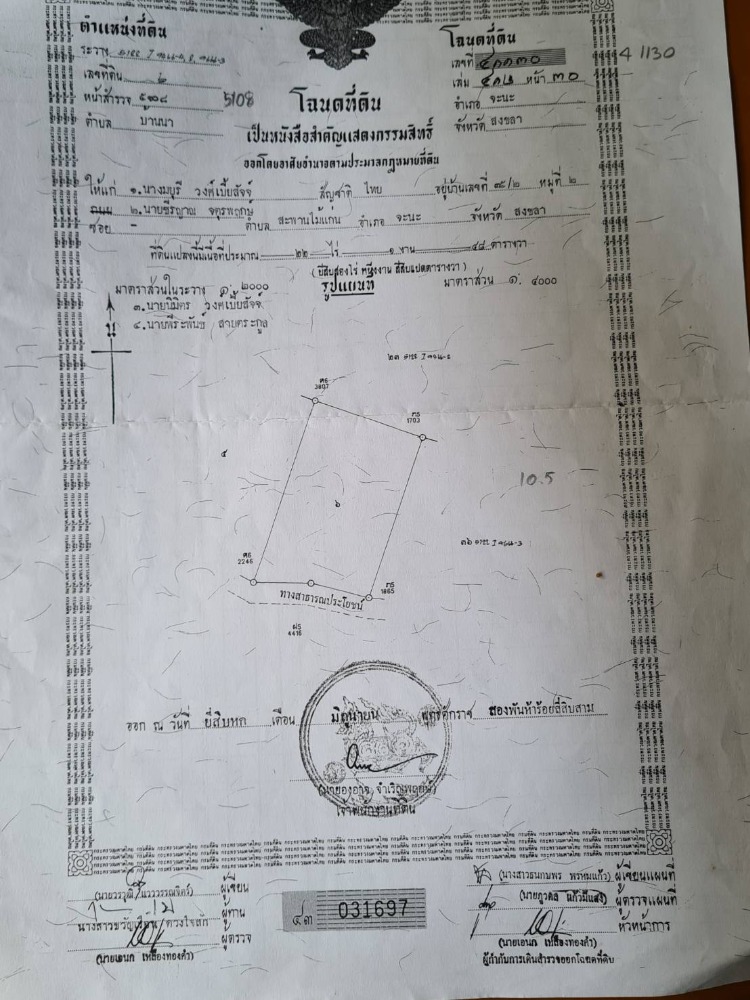 ตำแหน่งที่ดิน
ระวาง
เลขที่ดิน ๖
หน้าสำรวจ ๕๑๐๘ 5108
ตำบล บ้านนา
โฉนดที่ดิน
เลขที่ ๔๑๑๓๐ 41130
เล่ม ๔๑๒ หน้า ๓๐
อำเภอ จะนะ
จังหวัด สงขลา
โฉนดที่ดิน
เป็นหนังสือสำคัญแสดงกรรมสิทธิ์
ออกโดยอาศัยอำนาจตามประมวลกฎหมายที่ดิน
ให้แก่ ๑.นางมยุรี วงศ์เบี้ยสัจจ์ สัญชาติ ไทย อยู่บ้านเลขที่ ๓๕/๒ หมู่ที่ ๒
ถนน ๒.นายชีรญาณ จตุรพฤกษ์
ซอย - ตำบล สะพานไม้แก่น อำเภอ จะนะ จังหวัด สงขลา
ที่ดินแปลงนี้มีเนื้อที่ประมาณ ๒๒ ไร่ ๑ งาน ๔๘ ตารางวา
(ยี่สิบสองไร่ หนึ่งงาน สี่สิบแปดตารางวา)
มาตราส่วนในระวาง ๑: ๒๐๐๐ รูปแผนที่ มาตราส่วน ๑: ๔๐๐๐
๓.นายนิมิตร วงศ์เบี้ยสัจจ์
๔.นายพีระพันธ์ สายตระกูล
น
ศ6
3807
ศร
1703
๔
10.5
๖
ศ6
2246
ศร
1865
ทางสาธารณประโยชน์
4416
ออก ณ วันที่ ยี่สิบหก เดือน มิถุนายน พุทธศักราช สองพันห้าร้อยสี่สิบสาม
(นายองอาจ จำเริญพฤกษ์)
เจ้าพนักงานที่ดิน
ผู้เขียน
ผู้ทาน
ผู้ตรวจ
(นายเอนก เหลืองทองคำ)
๔๓ 031697
(นางสาวธนกมพร พรหมแก้ว) ผู้เขียนแผนที่
(นายภูวดล แก้วมีแสง) ผู้ตรวจแผนที่
หัวหน้าการ
(นายเอนก เหลืองทองคำ)
ผู้กำกับการเดินสำรวจออกโฉนดที่ดิน